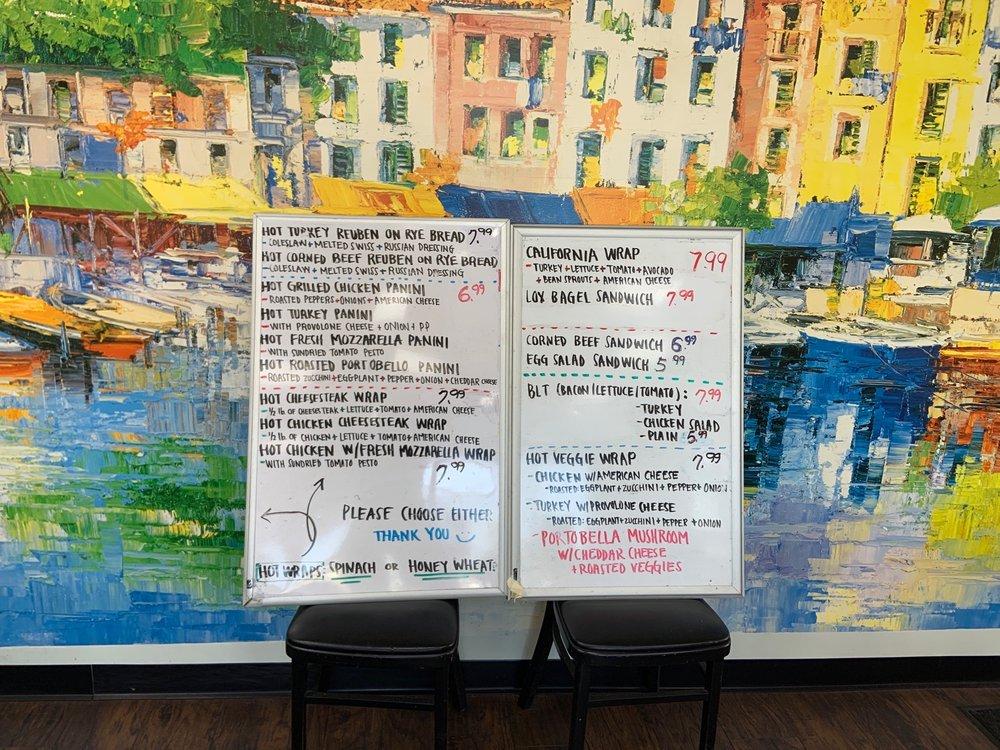 HOT TURKEY REUBEN ON RYE BREAD 7.99
- COLESLAW + MELTED SWISS + RUSSIAN DRESSING
HOT CORNED BEEF REUBEN ON RYE BREAD
- COLESLAW + MELTED SWISS + RUSSIAN DRESSING
HOT GRILLED CHICKEN PANINI 6.99
- ROASTED PEPPERS + ONIONS + AMERICAN CHEESE
HOT TURKEY PANINI
- WITH PROVOLONE CHEESE + ONION +
HOT FRESH MOZZARELLA PANINI
- WITH SUNDRIED TOMATO PESTO
HOT ROASTED PORTOBELLO PANINI
- ROASTED ZUCCHINI + EGGPLANT + PEPPER + ONION + CHEDDAR CHEESE
HOT CHEESESTEAK WRAP 7.99
- 1/2 lb OF CHEESESTEAK + LETTUCE + TOMATO + AMERICAN CHEESE
HOT CHICKEN CHEESESTEAK WRAP
- 1/2 lb OF CHICKEN + LETTUCE + TOMATO + AMERICAN CHEESE
HOT CHICKEN W/FRESH MOZZARELLA WRAP
- WITH SUNDRIED TOMATO PESTO 7.99
PLEASE CHOOSE EITHER
THANK YOU
HOT WRAPS: SPINACH OR HONEY WHEAT
CALIFORNIA WRAP 7.99
- TURKEY + LETTUCE + TOMATO + AVOCADO
+ BEAN SPROUTS + AMERICAN CHEESE
LOX BAGEL SANDWICH 7.99
CORNED BEEF SANDWICH 6.99
EGG SALAD SANDWICH 5.99
BLT (BACON/LETTUCE/TOMATO): 7.99
- TURKEY
- CHICKEN SALAD
- PLAIN 5.99
HOT VEGGIE WRAP 7.99
- CHICKEN W/AMERICAN CHEESE
- ROASTED: EGGPLANT + ZUCCHINI + PEPPER + ONION
- TURKEY W/PROVOLONE CHEESE
- ROASTED: EGGPLANT + ZUCCHINI + PEPPER + ONION
- PORTOBELLA MUSHROOM
W/CHEDDAR CHEESE
+ ROASTED VEGGIES